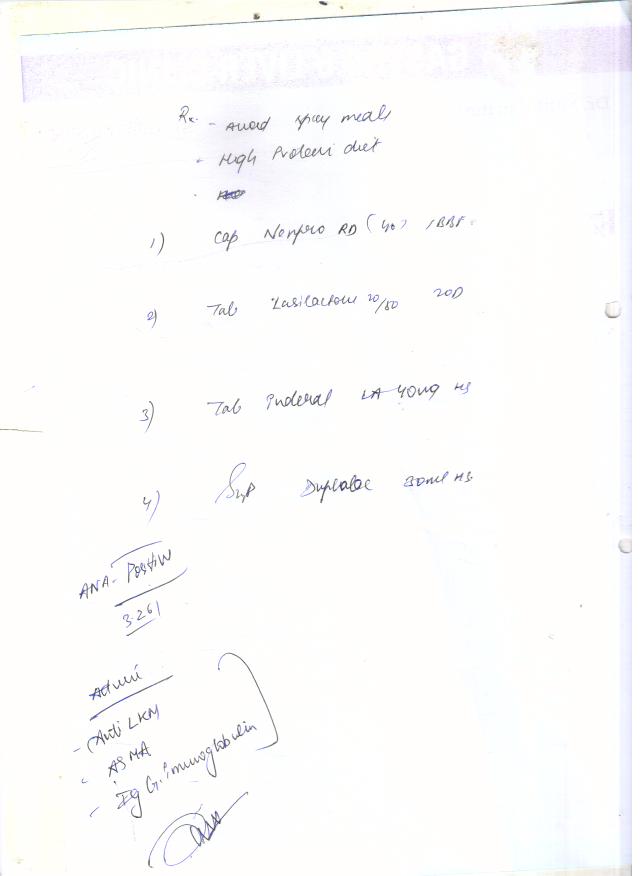 Rx. - Avoid spicy meals
- High Protein diet
1) Cap Nexpro RD (40) 1BBF
2) Tab Lasilactone 20/50 2OD
3) Tab Inderal LA 40mg HS
4) Syp Duphalac 30ml HS.
ANA- Positive
3.261
Advise
- Anti LKM
- ASMA
- Ig G. immunoglobulin